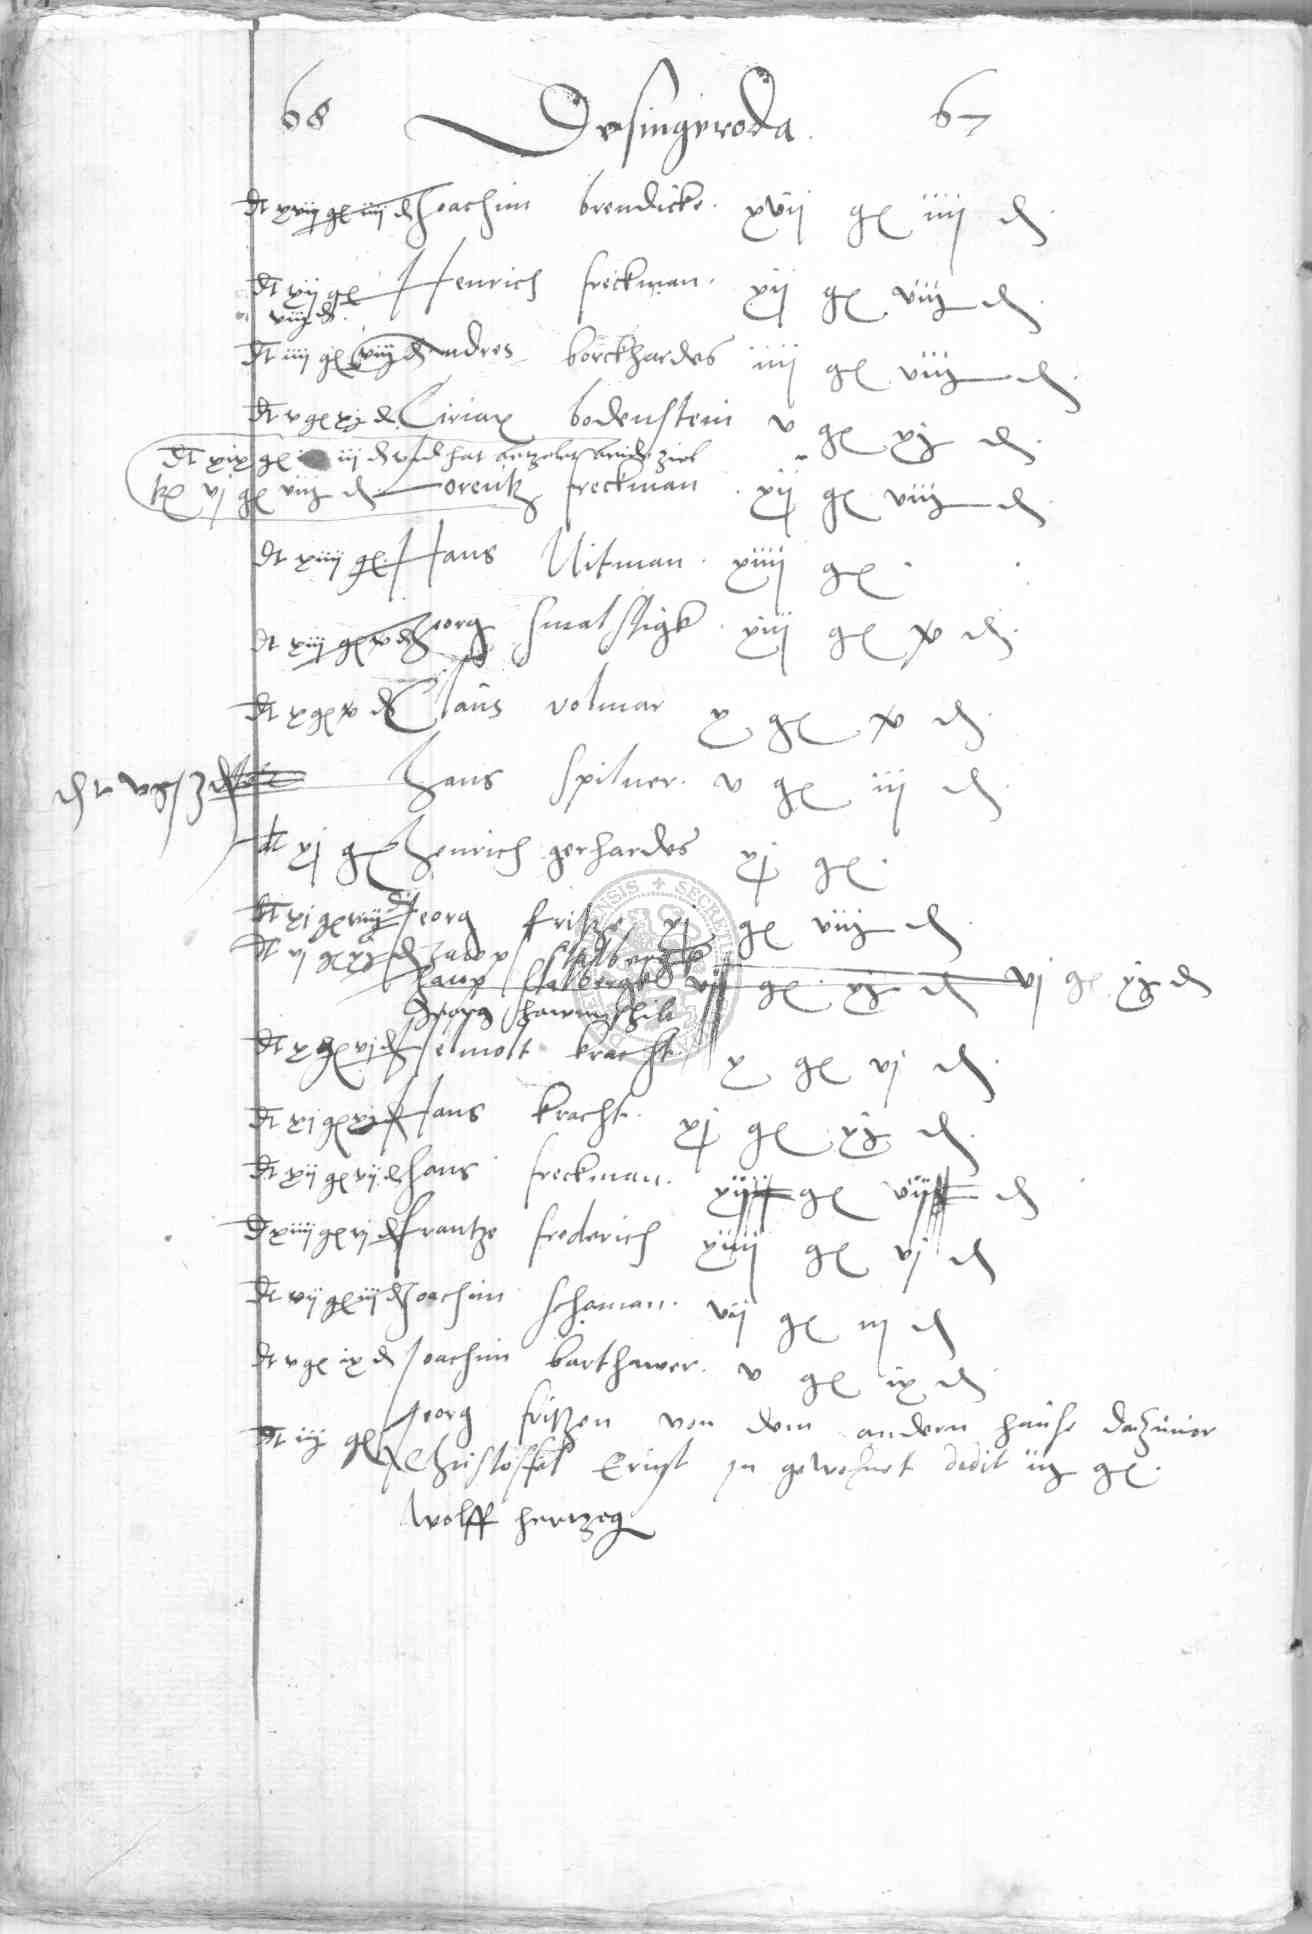 68 Desingeroda 67
dt xvij gl iiij d Joachim brendicke. xvij gl iiij d.
dt xij gl Henrich freckman. xij gl viij d.
viij d.
dt iiij gl viij d Andres borckhardes iiij gl viij d.
dt v gl xj d Ciriax bodenstein v gl xj d.
dt xix gl iij d vnd hat
vj gl viij d Lorentz freckman. xij gl viij d.
dt xiiij gl. Hans Uitman. xiiij gl.
dt xiij gl x d Jorg smalstigk. xiij gl x d.
dt x gl x d Claus volmar x gl x d.
Hans spilner. v gl iij d.
dt xj gl Henrich gerhardes xj gl.
dt xj gl viij d Jeorg fritze xj gl viij d.
dt vj gl xj d Jacop stalbergk
Jacop stalbergk vij gl xj d vj gl xj d
Georg
dt x gl vj d Helmolt kracht. x gl vj d.
dt xj gl xj d Hans kracht. xj gl xj d.
dt xij gl vij d Hans freckman. gl d
dt xiiij gl vj d frantze frederich xiiij gl vj d
dt vij gl iij d Joachim schaman. vij gl iij d
dt v gl ix d Joachim barthawer. v gl ix d.
Jeorg fritzen von dem andern hause
dt iij gl Christoffel Ernst jn gewohnet dedit iij gl.
Wolff hertzog